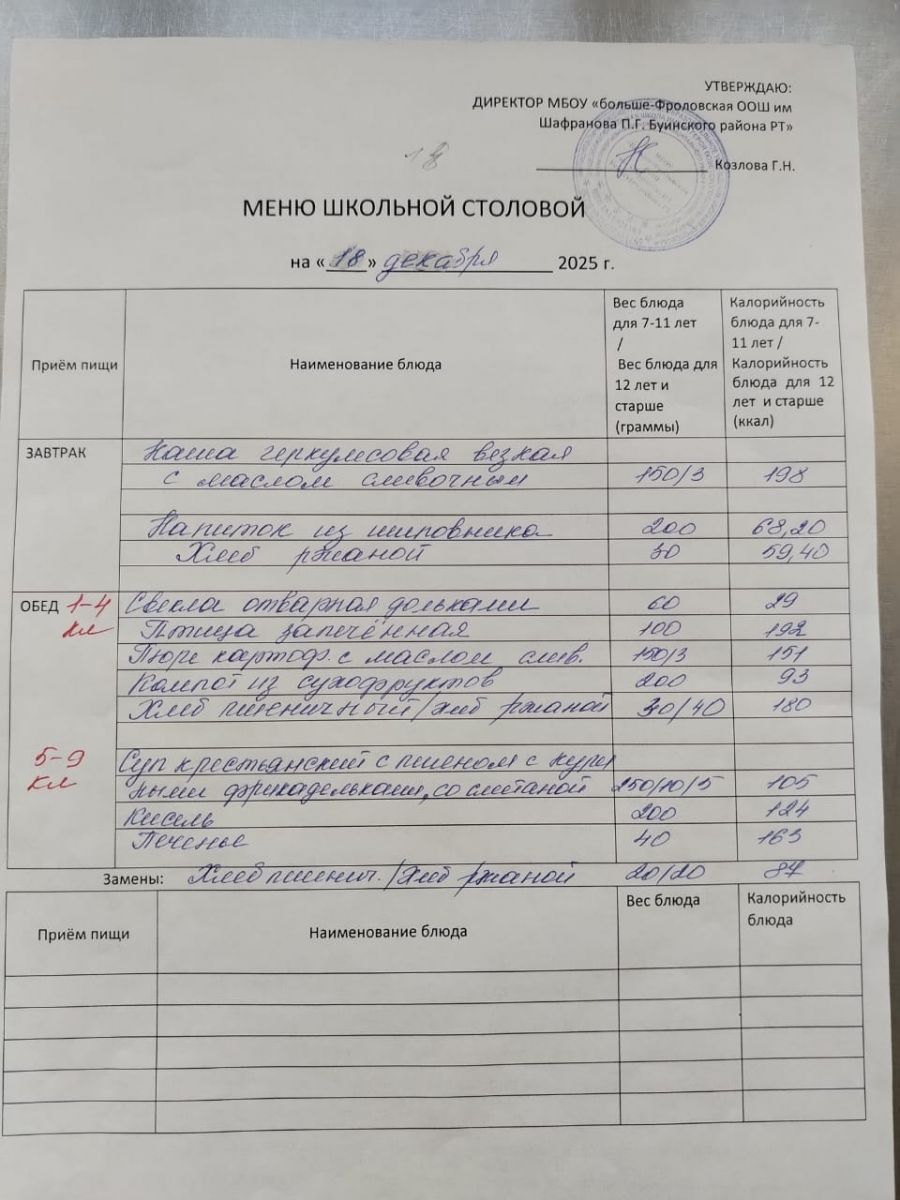 УТВЕРЖДАЮ:
ДИРЕКТОР МБОУ «больше-Фроловская ООШ им
Шафранова П.Г. Буинского района РТ»
18
Козлова Г.Н.
МЕНЮ ШКОЛЬНОЙ СТОЛОВОЙ
на «18» декабря 2025 г.
Приём пищи
Наименование блюда
Вес блюда
для 7-11 лет
/
Вес блюда для
12 лет и
старше
(граммы)
Калорийность
блюда для 7-
11 лет /
Калорийность
блюда для 12
лет и старше
(ккал)
ЗАВТРАК
Каша геркулесовая вязкая
с маслом сливочным 150/3 198
Напиток из шиповника 200 68,20
Хлеб ржаной 30 59,40
ОБЕД 1-4 Свекла отварная дольками 60 29
кл Птица запечённая 100 192
Пюре картоф. с маслом слив. 150/3 151
Компот из сухофруктов 200 93
Хлеб пшеничный/хлеб ржаной 30/40 180
5-9 Суп крестьянский с пшеном с кури
кл ными фрикадельками, со сметаной 250/10/5 105
Кисель 200 124
Печенье 40 163
Замены: Хлеб пшенич./Хлеб ржаной 20/20 87
Приём пищи
Наименование блюда
Вес блюда
Калорийность
блюда